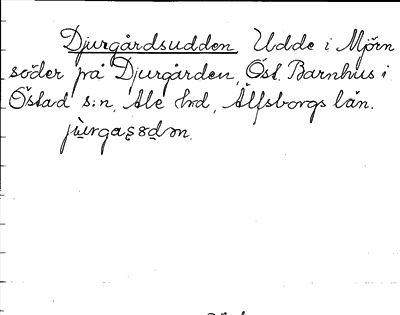 Djurgårdsudden Udde i Mjörn
söder på Djurgården, Öst. Barnhus i
Östad s:n, Ale hrd, Älfsborgs län.